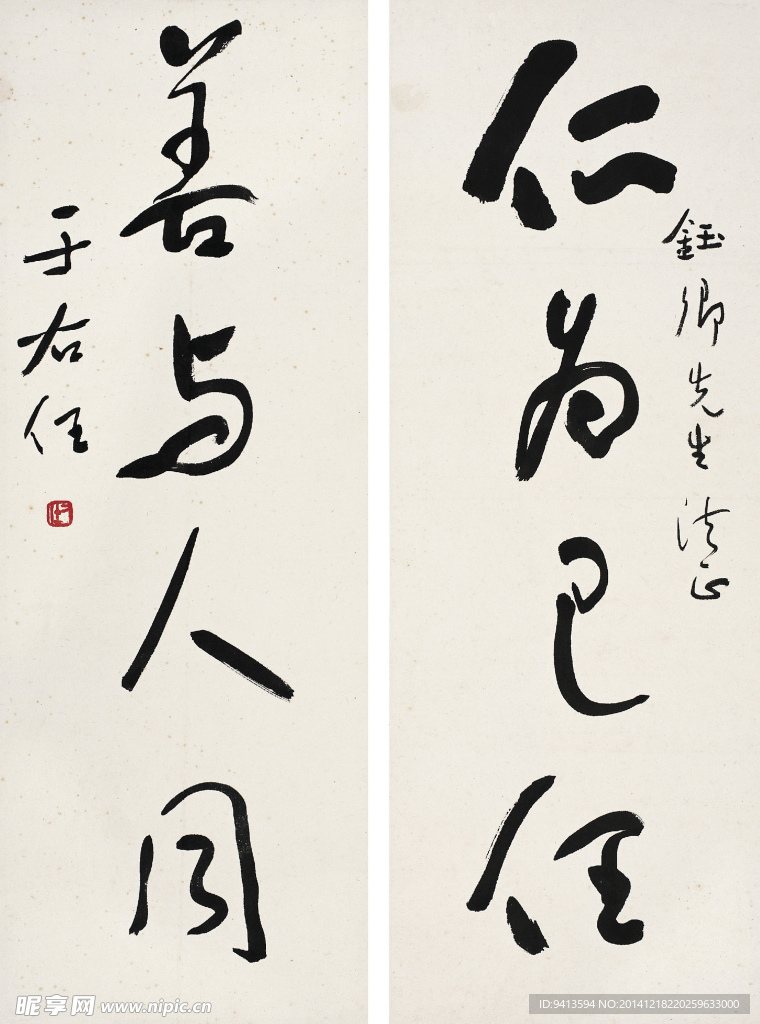 仁为己任
钰卿先生法正
善与人同
于右任
昵享网 www.nipic.cn
ID:9413594 NO:20141218220259633000